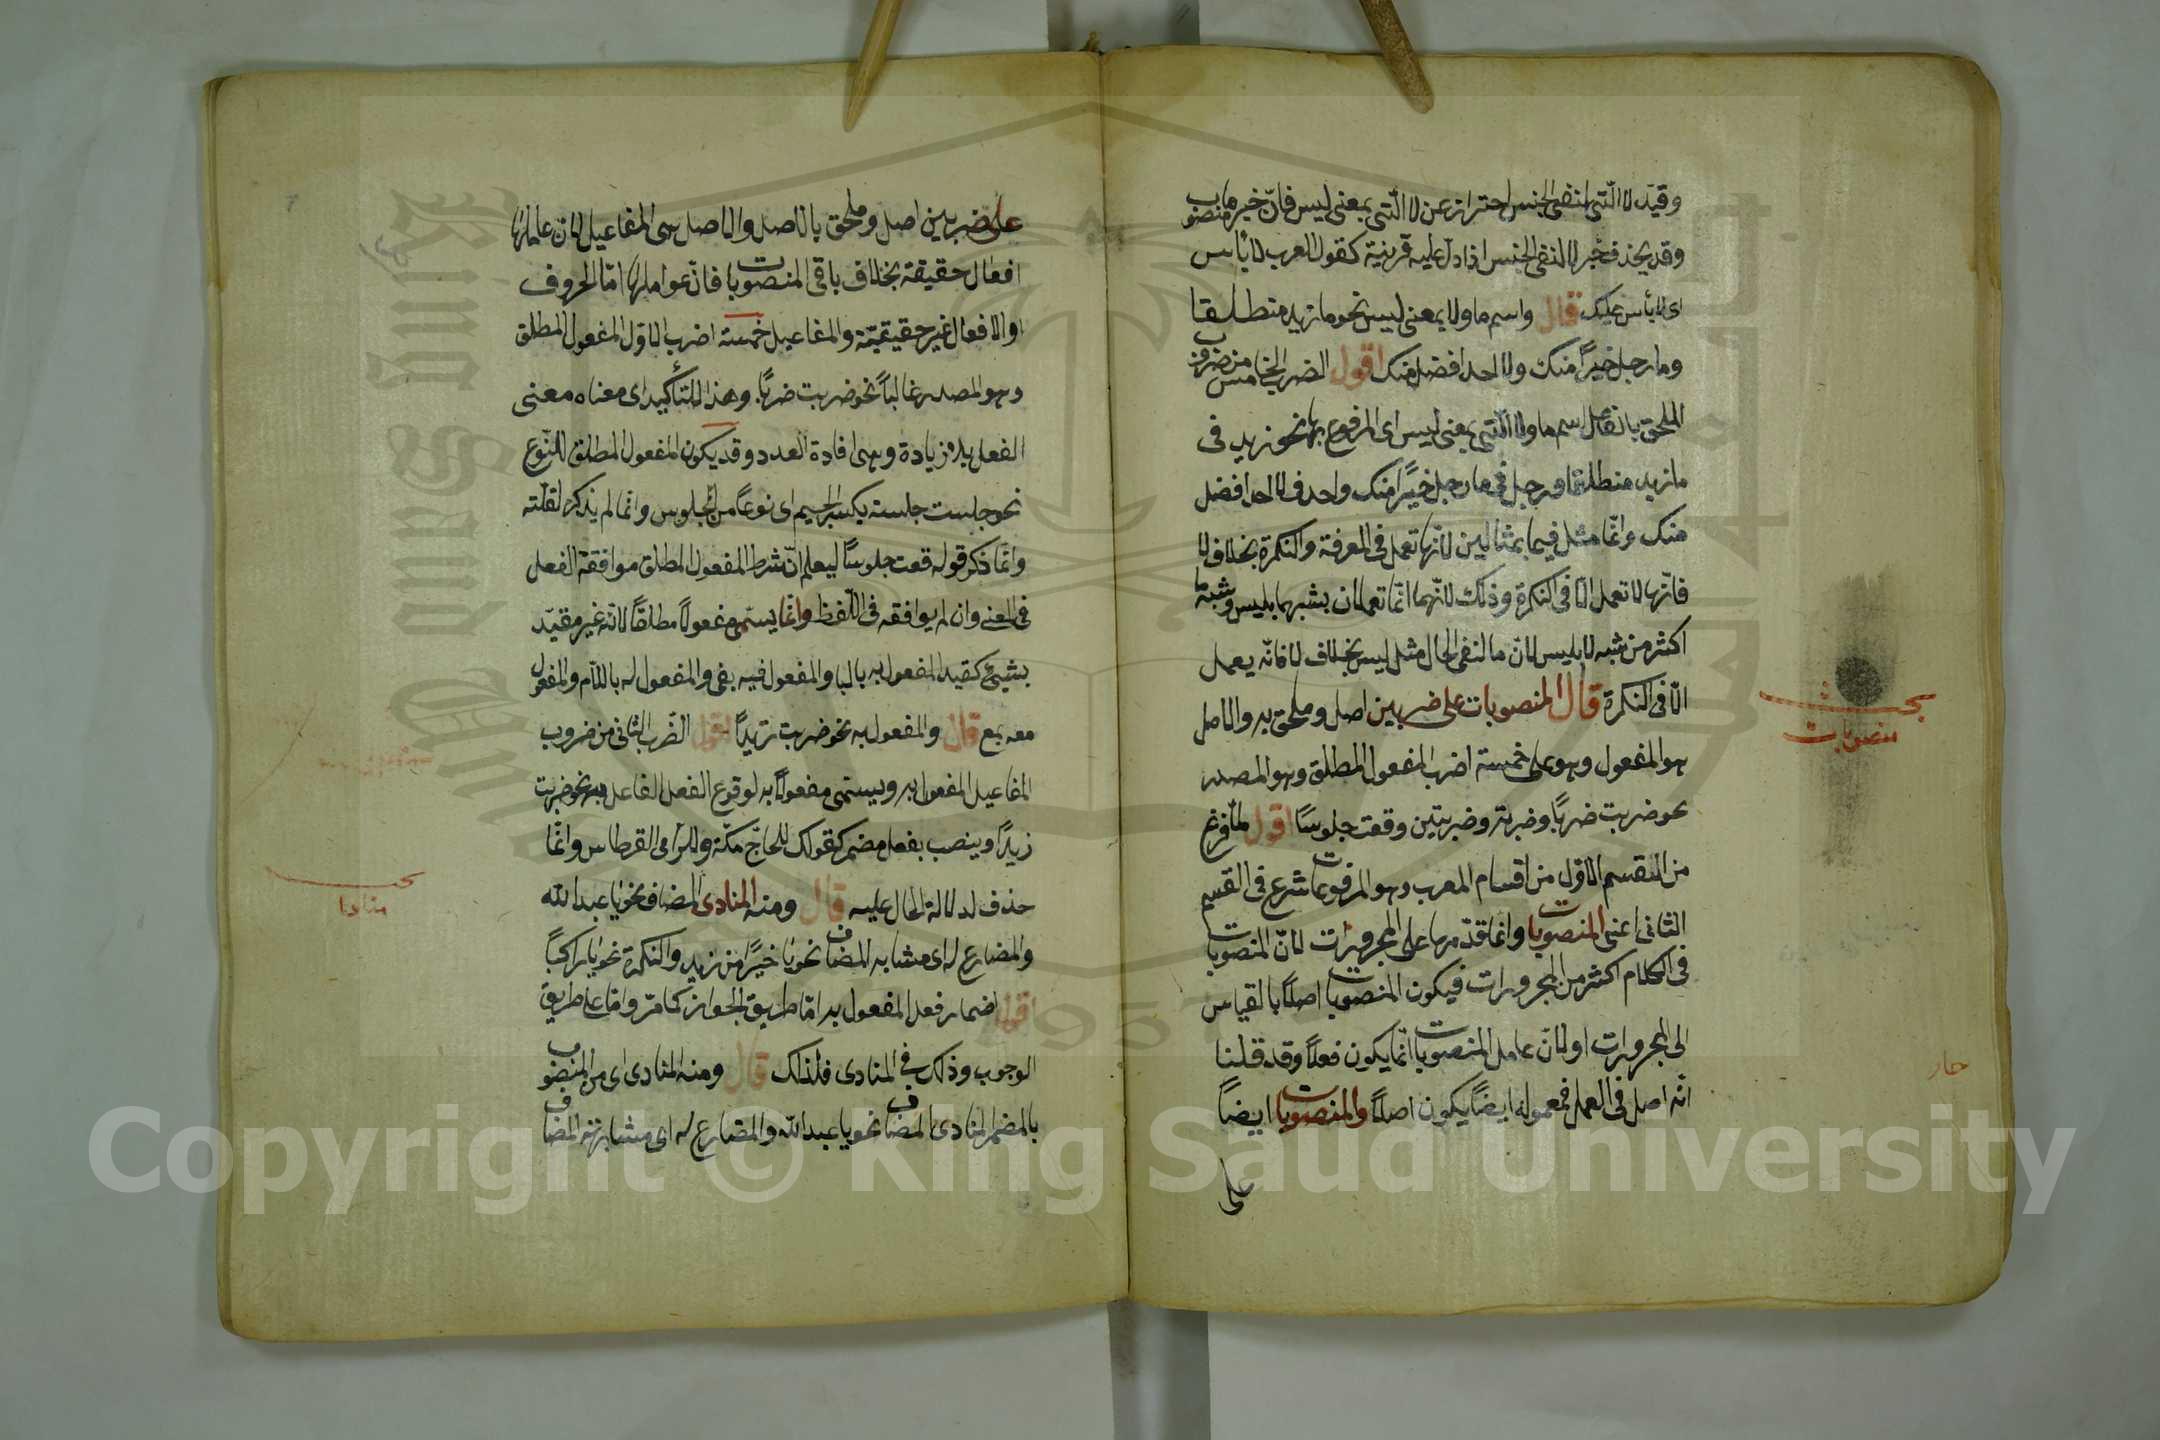 وقيد لا الّتى لنفى الجنس احتراز عن لا الّتى بمعنى ليس فانّ خبرها منصوب
وقد يحذف خبر لا لنفى الجنس اذا دل عليه قرينة كقول العرب لا بأس
اى لا بأس عليك قال واسم ما ولا بمعنى ليس نحو ما زيد منطلقا
وما رجل خيرًا منك ولا احد افضل منك اقول الضرب الخامس من ضروب
الملحق بالفاعل اسم ما ولا الّتى بمعنى ليس اى المرفوع بهما نحو زيد فى
ما زيد منطلقا ورجل فى ما رجل خيرًا منك واحد فى لا احد افضل
منك وانّما مثل فيما بمثالين لانها تعمل فى المعرفة والنكرة بخلاف لا
فانّها لا تعمل الّا فى النكرة وذلك لانّهما انّما تعملان بشبههما بليس وشبه ما
اكثر من شبه لا بليس لانّ ما لنفى الحال مثل ليس بخلاف لا فانّه يعمل
الّا فى النكرة قال المنصوبات على ضربين اصل وملحق به والاصل
هو المفعول وهو على خمسة اضرب المفعول المطلق وهو المصدر
نحو ضربت ضربًا وضربة وضربتين وقعدت جلوسًا اقول لمّا فرغ
من القسم الاوّل من اقسام المعرب وهو المرفوعات شرع فى القسم
الثانى اعنى المنصوبات وانما قدّمها على المجرورات لانّ المنصوبات
فى الكلام اكثر من المجرورات فيكون المنصوبات اصلًا بالقياس
الى المجرورات او لانّ عامل المنصوبات انّما يكون فعلًا وقد قلنا
انّه اصل فى العمل فمعموله ايضًا يكون اصلًا والمنصوبات ايضًا
على
بحث
منصوبات
على ضربين اصل وملحق بالاصل والاصل هى المفاعيل لانّ عاملها
افعال حقيقة بخلاف باقى المنصوبات فانّ عواملها امّا الحروف
او الافعال غير حقيقيّة والمفاعيل خمسة اضرب الاوّل المفعول المطلق
وهو المصدر غالبًا نحو ضربت ضربًا وهذا للتأكيد اى معناه معنى
الفعل بلا زيادة وهى افادة العدد وقد يكون المفعول المطلق للنّوع
نحو جلست جلسة بكسر الجيم اى نوعًا من الجلوس وانّما لم يذكره لقلّته
وانّما ذكر قوله قعدت جلوسًا ليعلم انّ شرط المفعول المطلق موافقة الفعل
فى المعنى وان لم يوافقه فى اللّفظ وانّما يسمّى مفعولًا مطلقًا لانّه غير مقيّد
بشيئ كقيد المفعول به بالبا والمفعول فيه بفى والمفعول له باللّام والمفعول
معه بمع قال والمفعول به نحو ضربت زيدًا اقول الضّرب الثانى من ضروب
المفاعيل المفعول به ويسمّى مفعولًا به لوقوع الفعل الفاعل به نحو ضربت
زيدًا وينصب بفعل مضمر كقولك للحاجّ مكّة وللرّامى القرطاس وانّما
حذف لدلالة الحال عليه قال ومنه المنادى المضاف نحو يا عبد الله
والمضارع له اى مشابه المضاف نحو يا خيرًا من زيد والنكرة نحو يا راكبًا
اقول اضمار فعل المفعول به امّا طريق الجواز كما مرّ وامّا على طريق
الوجوب وذلك فى المنادى فلذلك قال ومنه المنادى اى من المنصوب
بالمضمر المنادى المضاف نحو يا عبد الله والمضارع له اى مشابهته المضاف
بحث
منادا